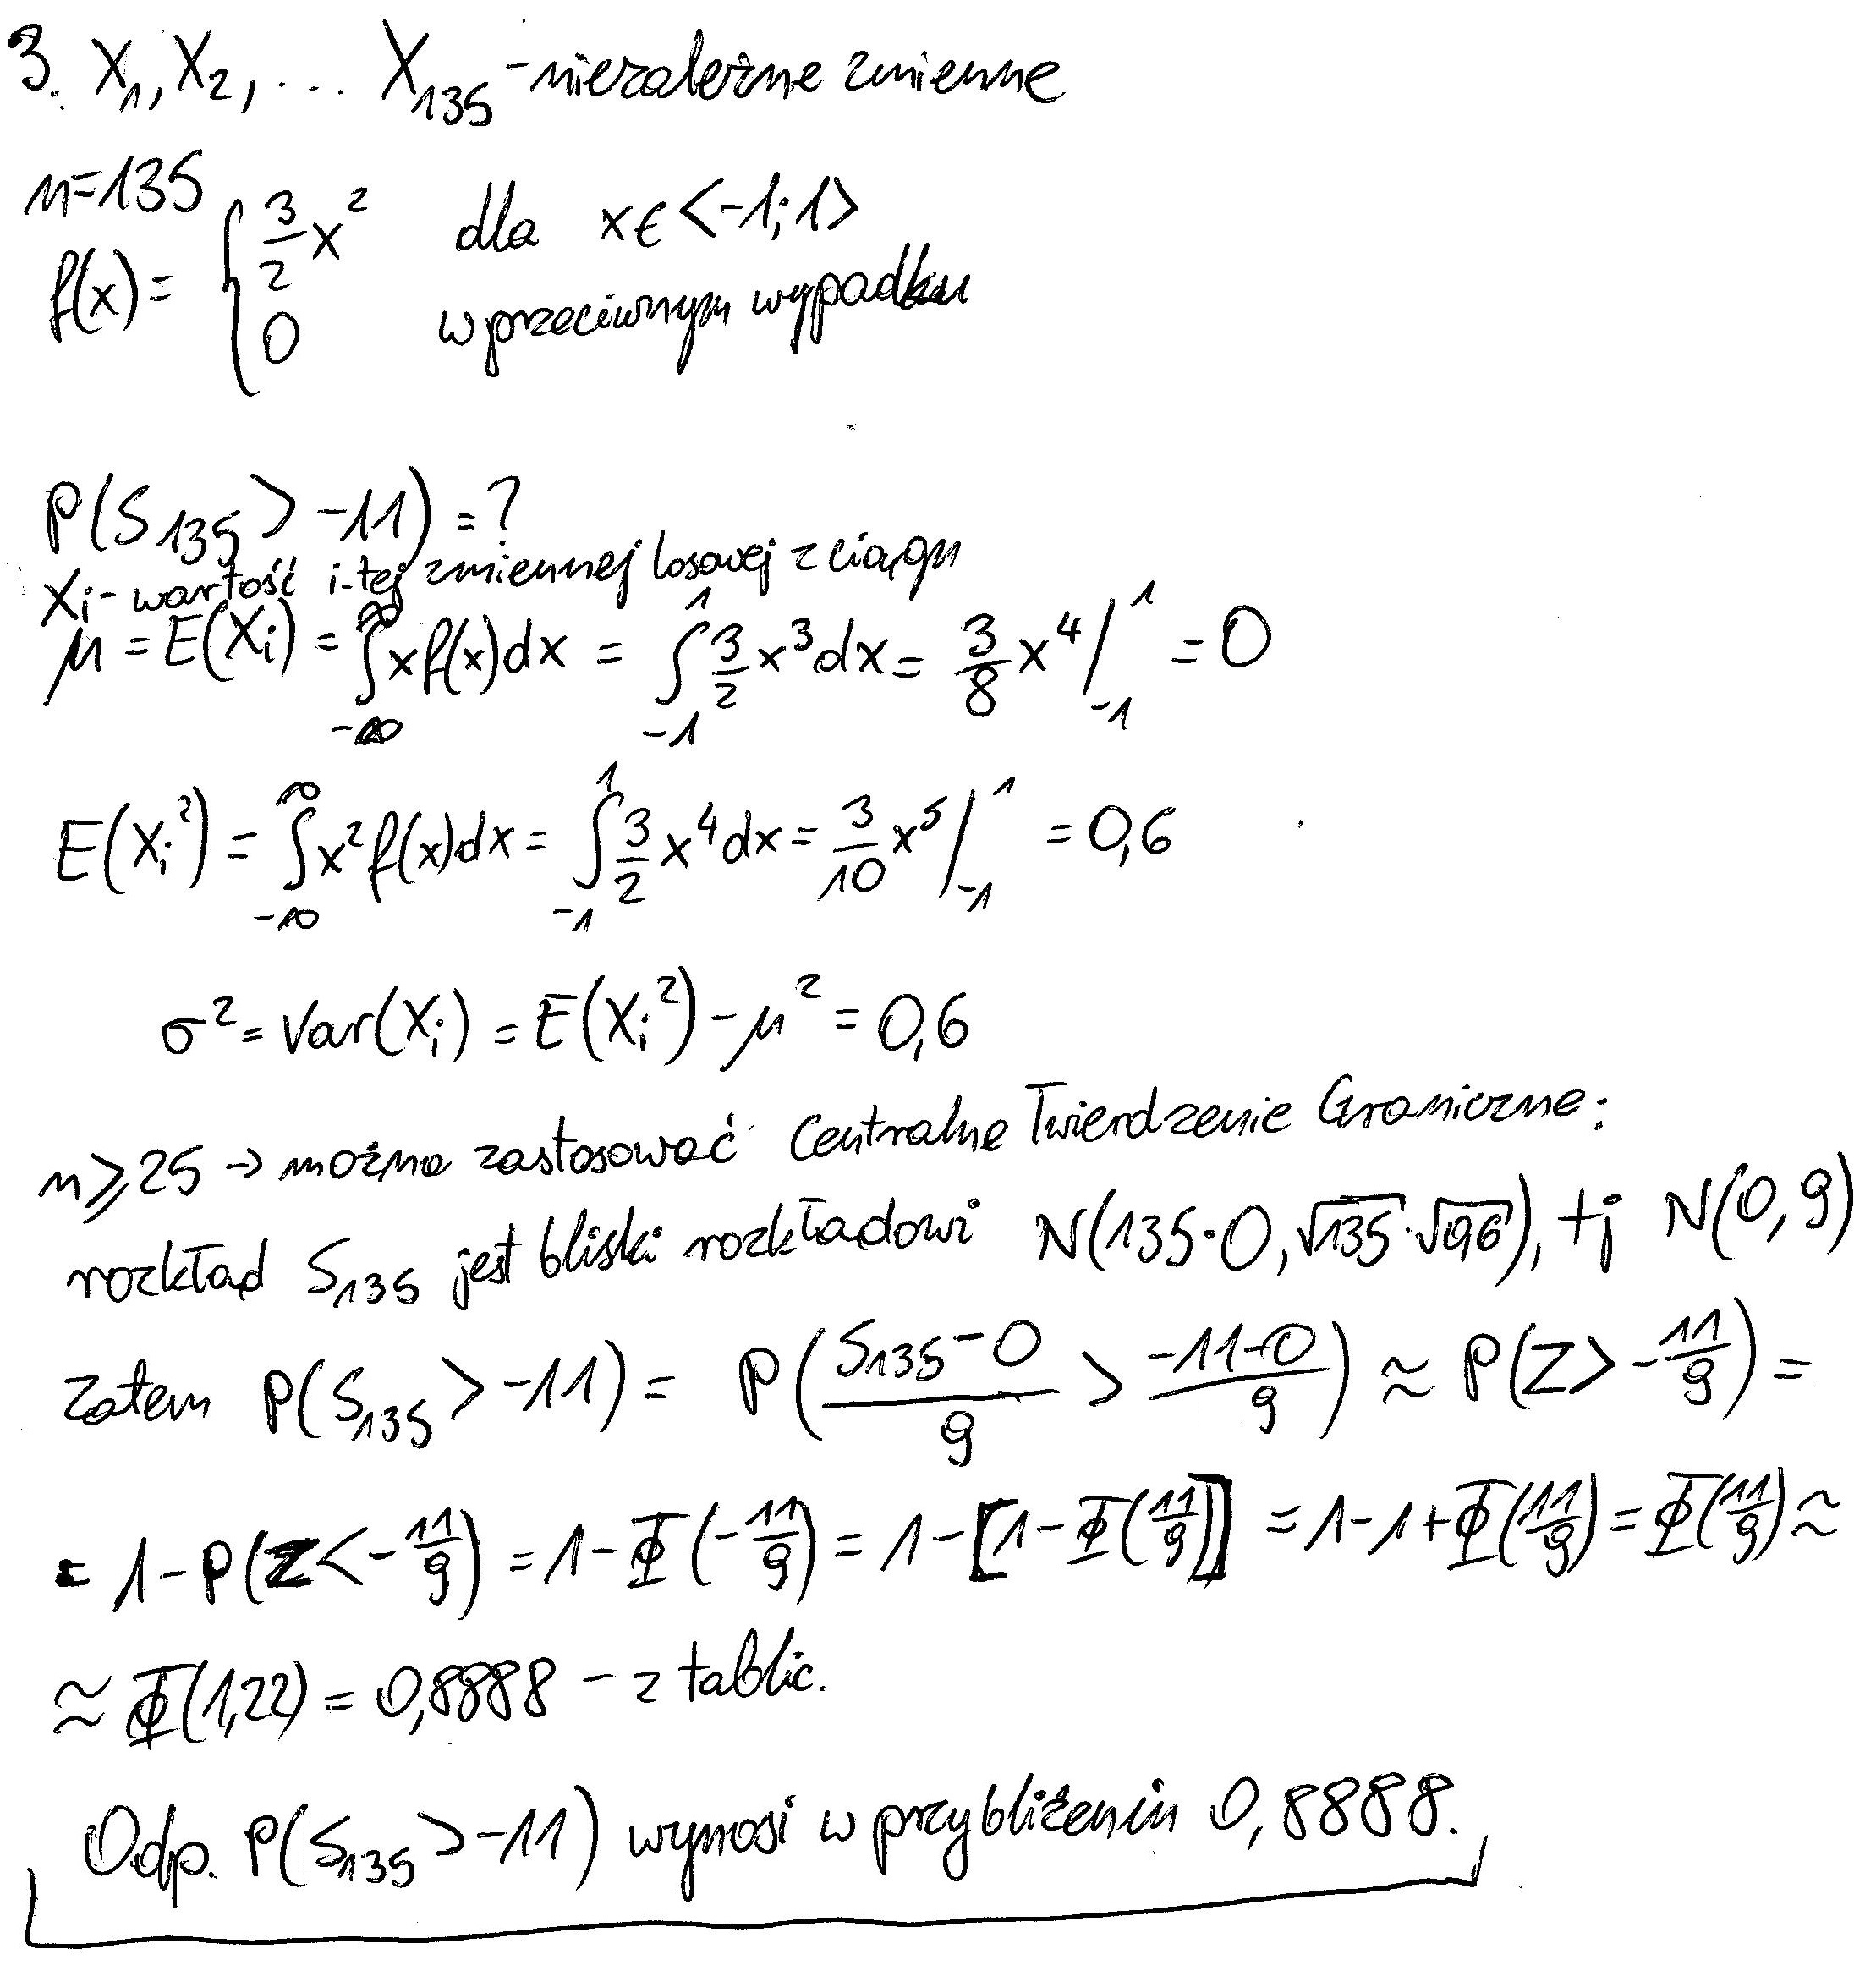 3. X₁, X₂, ... X₁₃₅ - niezależne zmienne
n=135
f(x) = { 3/2 x² dla x∈<-1;1>
0 w przeciwnym wypadku
P(S₁₃₅ > -11) = ?
Xi - wartość i-tej zmiennej losowej z ciągu
μ = E(Xi) = ∫_{-∞}^{∞} x f(x) dx = ∫_{-1}^{1} 3/2 x³ dx = 3/8 x⁴ /_{-1}^{1} = 0
E(Xi²) = ∫_{-∞}^{∞} x² f(x) dx = ∫_{-1}^{1} 3/2 x⁴ dx = 3/10 x⁵ /_{-1}^{1} = 0,6
σ² = Var(Xi) = E(Xi²) - μ² = 0,6
n ≥ 25 → można zastosować Centralne Twierdzenie Graniczne:
rozkład S₁₃₅ jest bliski rozkładowi N(135·0, √135·√0,6), tj N(0, 9)
zatem P(S₁₃₅ > -11) = P((S₁₃₅ - 0)/9 > (-11-0)/9) ≈ P(Z > -11/9) =
= 1 - P(Z < -11/9) = 1 - Φ(-11/9) = 1 - [1 - Φ(11/9)] = 1 - 1 + Φ(11/9) = Φ(11/9) ≈
≈ Φ(1,22) = 0,8888 - z tablic.
Odp. P(S₁₃₅ > -11) wynosi w przybliżeniu 0,8888.